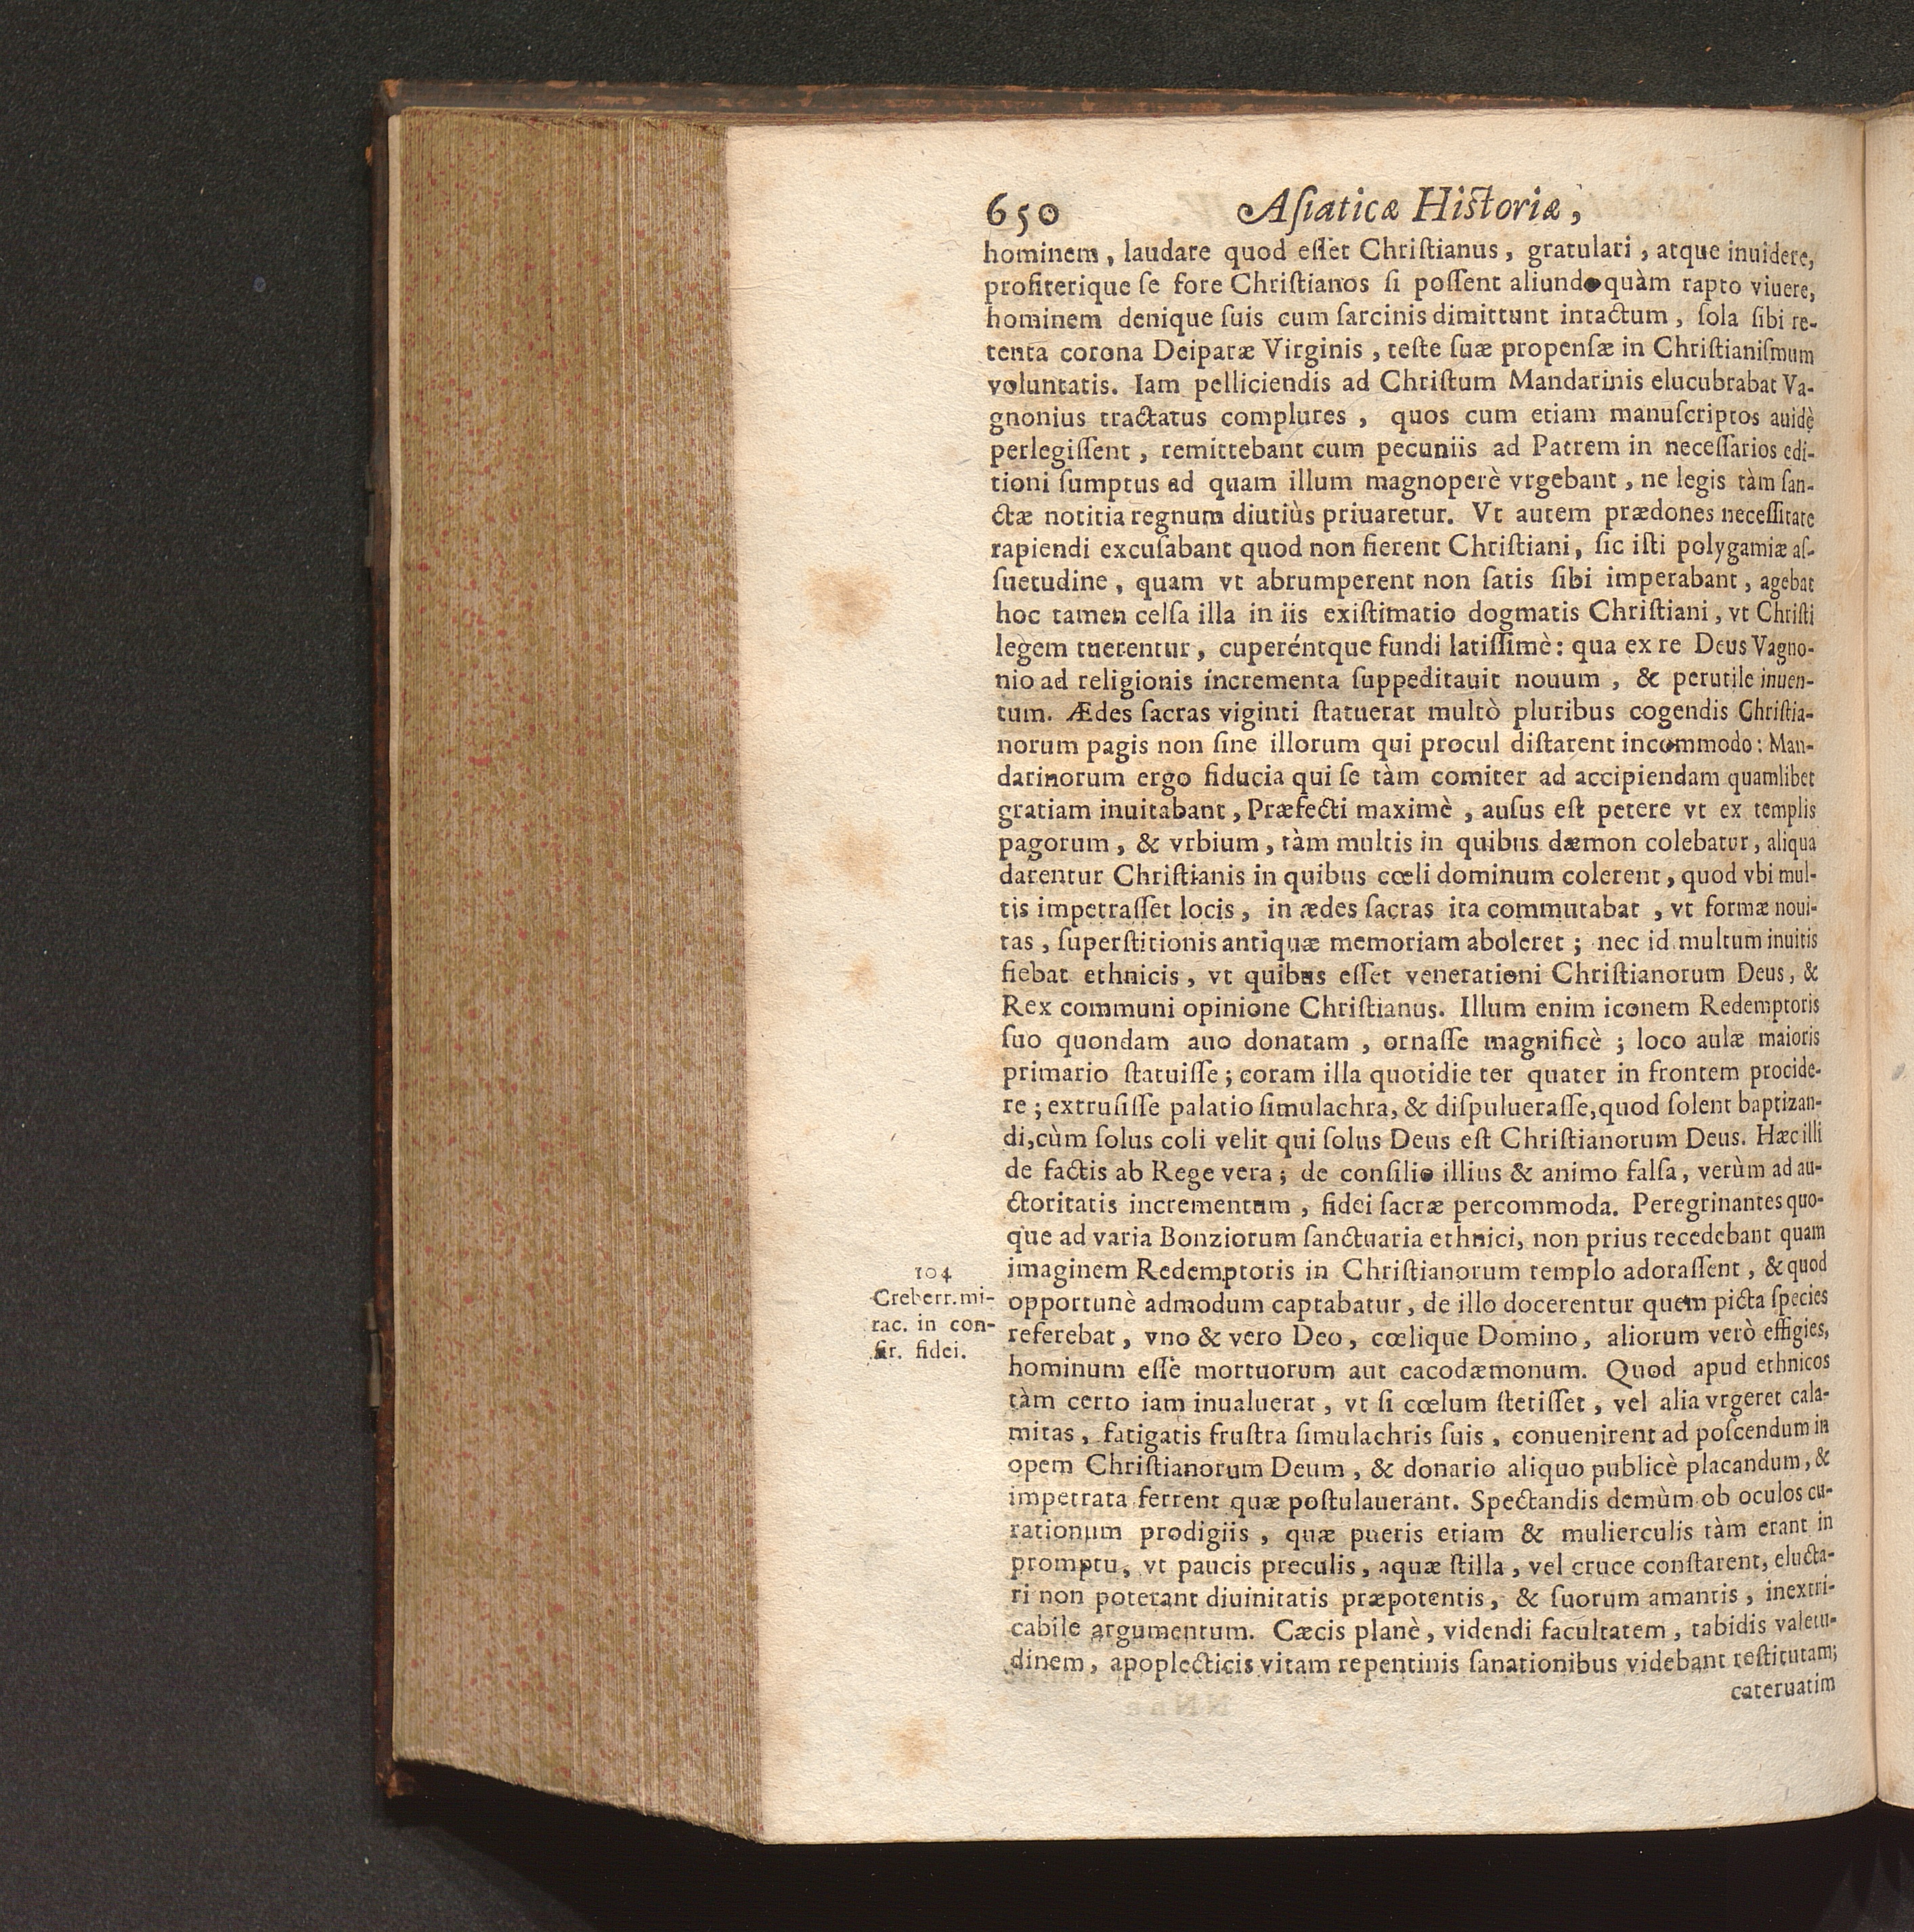 650 Aſiaticæ Hiſtoriæ,
hominem, laudare quod eſſet Chriſtianus, gratulari, atque inuidere,
profiterique ſe fore Chriſtianos ſi poſſent aliunde quàm rapto viuere,
hominem denique ſuis cum ſarcinis dimittunt intactum, ſola ſibi re-
tenta corona Deiparæ Virginis, teſte ſuæ propenſæ in Chriſtianiſmum
voluntatis. Iam pelliciendis ad Chriſtum Mandarinis elucubrabat Va-
gnonius tractatus complures, quos cum etiam manuſcriptos auidè
perlegiſſent, remittebant cum pecuniis ad Patrem in neceſſarios edi-
tioni ſumptus ad quam illum magnoperè vrgebant, ne legis tàm ſan-
ctæ notitia regnum diutiùs priuaretur. Vt autem prædones neceſſitate
rapiendi excuſabant quod non fierent Chriſtiani, ſic iſti polygamiæ aſ-
ſuetudine, quam vt abrumperent non ſatis ſibi imperabant, agebat
hoc tamen celſa illa in iis exiſtimatio dogmatis Chriſtiani, vt Chriſti
legem tuerentur, cuperéntque fundi latiſſimè: qua ex re Deus Vagno-
nio ad religionis incrementa ſuppeditauit nouum, & perutile inuen-
tum. Ædes ſacras viginti ſtatuerat multò pluribus cogendis Chriſtia-
norum pagis non ſine illorum qui procul diſtarent incommodo: Man-
darinorum ergo fiducia qui ſe tàm comiter ad accipiendam quamlibet
gratiam inuitabant, Præfecti maximè, auſus eſt petere vt ex templis
pagorum, & vrbium, tàm multis in quibus dæmon colebatur, aliqua
darentur Chriſtianis in quibus cœli dominum colerent, quod vbi mul-
tis impetraſſet locis, in ædes ſacras ita commutabat, vt formæ noui-
tas, ſuperſtitionis antiquæ memoriam aboleret; nec id multum inuitis
fiebat ethnicis, vt quibus eſſet venerationi Chriſtianorum Deus, &
Rex communi opinione Chriſtianus. Illum enim iconem Redemptoris
ſuo quondam auo donatam, ornaſſe magnificè; loco aulæ maioris
primario ſtatuiſſe; coram illa quotidie ter quater in frontem procide-
re; extruſiſſe palatio ſimulachra, & diſpulueraſſe, quod ſolent baptizan-
di, cùm ſolus coli velit qui ſolus Deus eſt Chriſtianorum Deus. Hæc illi
de factis ab Rege vera; de conſilio illius & animo falſa, verùm ad au-
ctoritatis incrementum, fidei ſacræ percommoda. Peregrinantes quo-
que ad varia Bonziorum ſanctuaria ethnici, non prius recedebant quam
imaginem Redemptoris in Chriſtianorum templo adoraſſent, & quod
opportunè admodum captabatur, de illo docerentur quem picta ſpecies
referebat, vno & vero Deo, cœlique Domino, aliorum verò effigies,
hominum eſſe mortuorum aut cacodæmonum. Quod apud ethnicos
tàm certo iam inualuerat, vt ſi cœlum ſtetiſſet, vel alia vrgeret cala-
mitas, fatigatis fruſtra ſimulachris ſuis, conuenirent ad poſcendum in
opem Chriſtianorum Deum, & donario aliquo publicè placandum, &
impetrata ferrent quæ poſtulauerant. Spectandis demùm ob oculos cu-
rationum prodigiis, quæ pueris etiam & mulierculis tàm erant in
promptu, vt paucis preculis, aquæ ſtilla, vel cruce conſtarent, elucta-
ri non poterant diuinitatis præpotentis, & ſuorum amantis, inextri-
cabile argumentum. Cæcis planè, videndi facultatem, tabidis valetu-
dinem, apoplecticis vitam repentinis ſanationibus videbant reſtitutam;
cateruatim
104
Creberr. mi-
rac. in con-
fir. fidei.